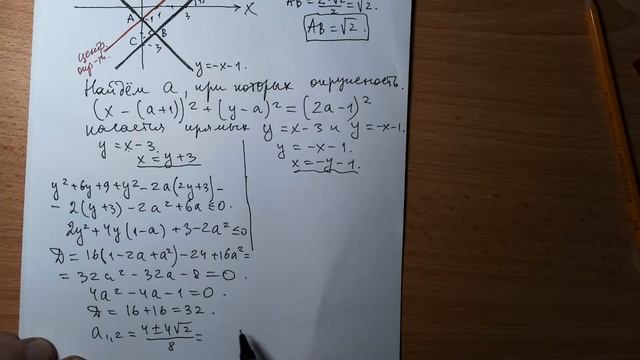 X
A
C
B
1
3
-3
центр.
окр-ти.
y=-x-1.
AB=√2.
Найдём a, при которых окружность.
(x-(a+1))²+(y-a)²=(2a-1)²
касается прямых y=x-3 и y=-x-1.
y=x-3.
x=y+3
y=-x-1.
x=-y-1.
y²+6y+9+y²-2a(2y+3)-
-2(y+3)-2a²+6a≤0.
2y²+4y(1-a)+3-2a²≤0
D=16(1-2a+a²)-24+16a²=
=32a²-32a-8=0.
4a²-4a-1=0.
D=16+16=32.
a₁,₂=(4±4√2)/8=